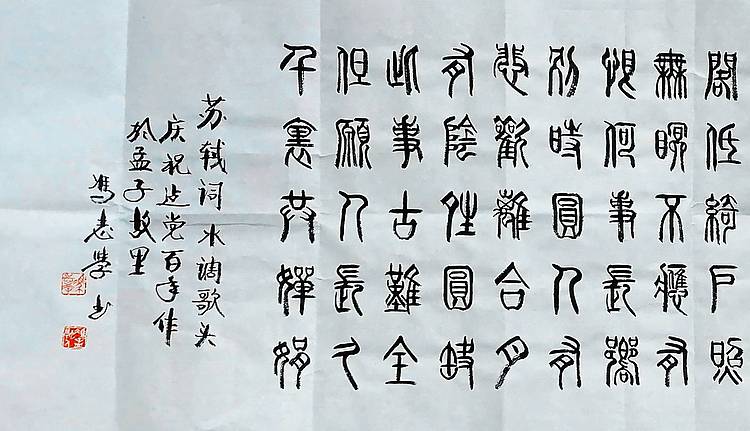 閣低綺戶照
無眠不應有
恨何事長嚮
別時圓人有
悲歡離合月
有陰晴圓缺
此事古難全
但願人長久
千裏共嬋娟
苏轼词水调歌头
庆祝建党百年作
於孟子故里
冯志学书